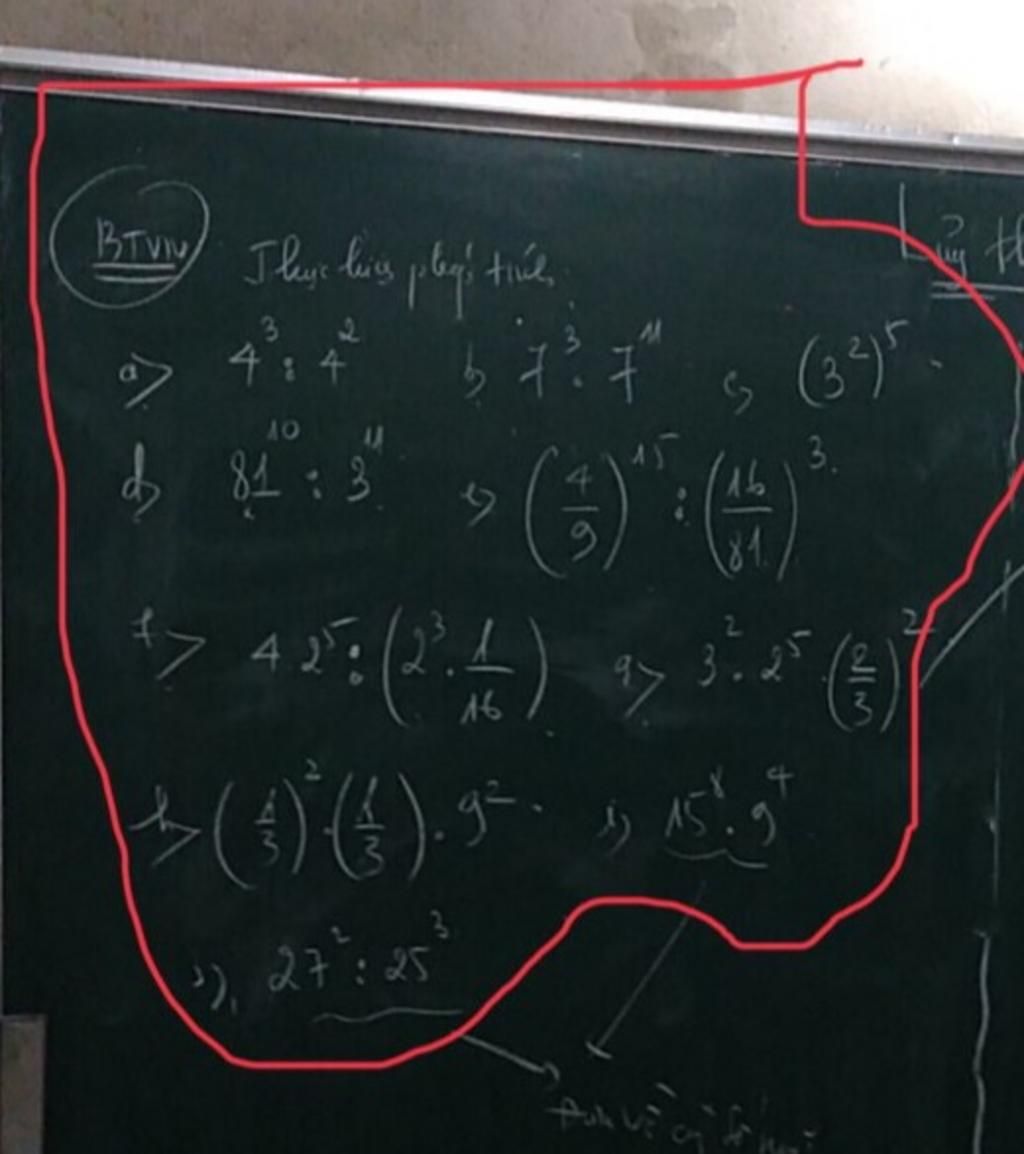 BTVN Thực hiện phép tính
Lũy th
a) 4³ : 4² b) 7³ . 7¹¹ c) (3²)⁵
d) 81¹⁰ : 3¹¹ e) (4/9)¹⁵ : (16/81)³
f) 4.2⁵ : (2³ . 1/16) g) 3² . 2⁵ . (2/3)²
h) (1/3)² . (1/3) . 9² i) 15⁸ . 9⁴
27² : 25³
Đưa về cùng số mũ